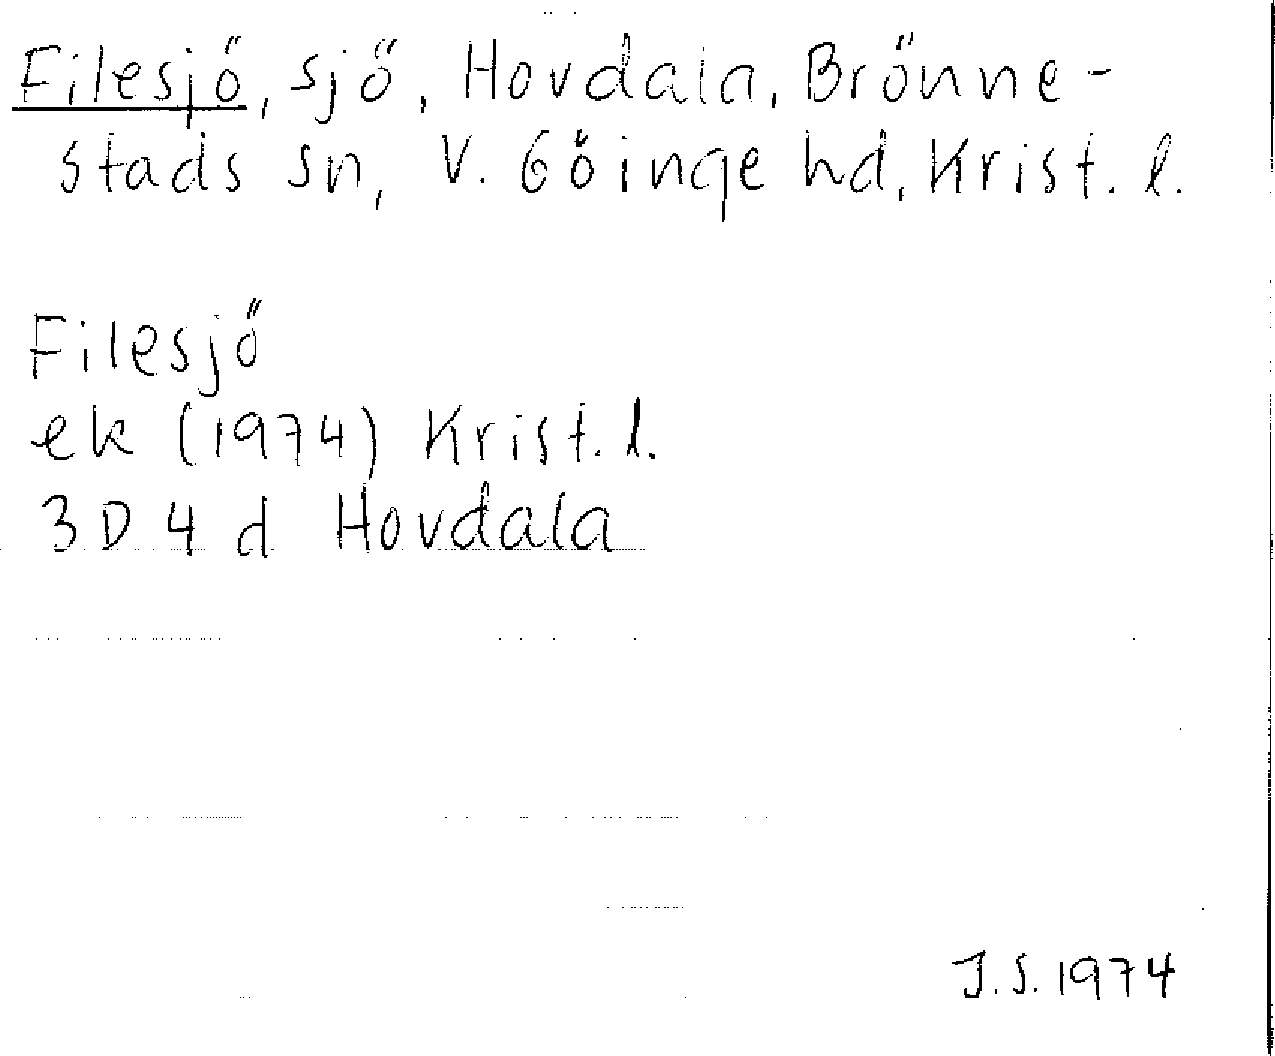 Filesjö, sjö, Hovdala, Brönne-
stads sn, V. Göinge hd, Krist. l.
Filesjö
ek (1974) Krist. l.
3D 4 d Hovdala
J.S. 1974